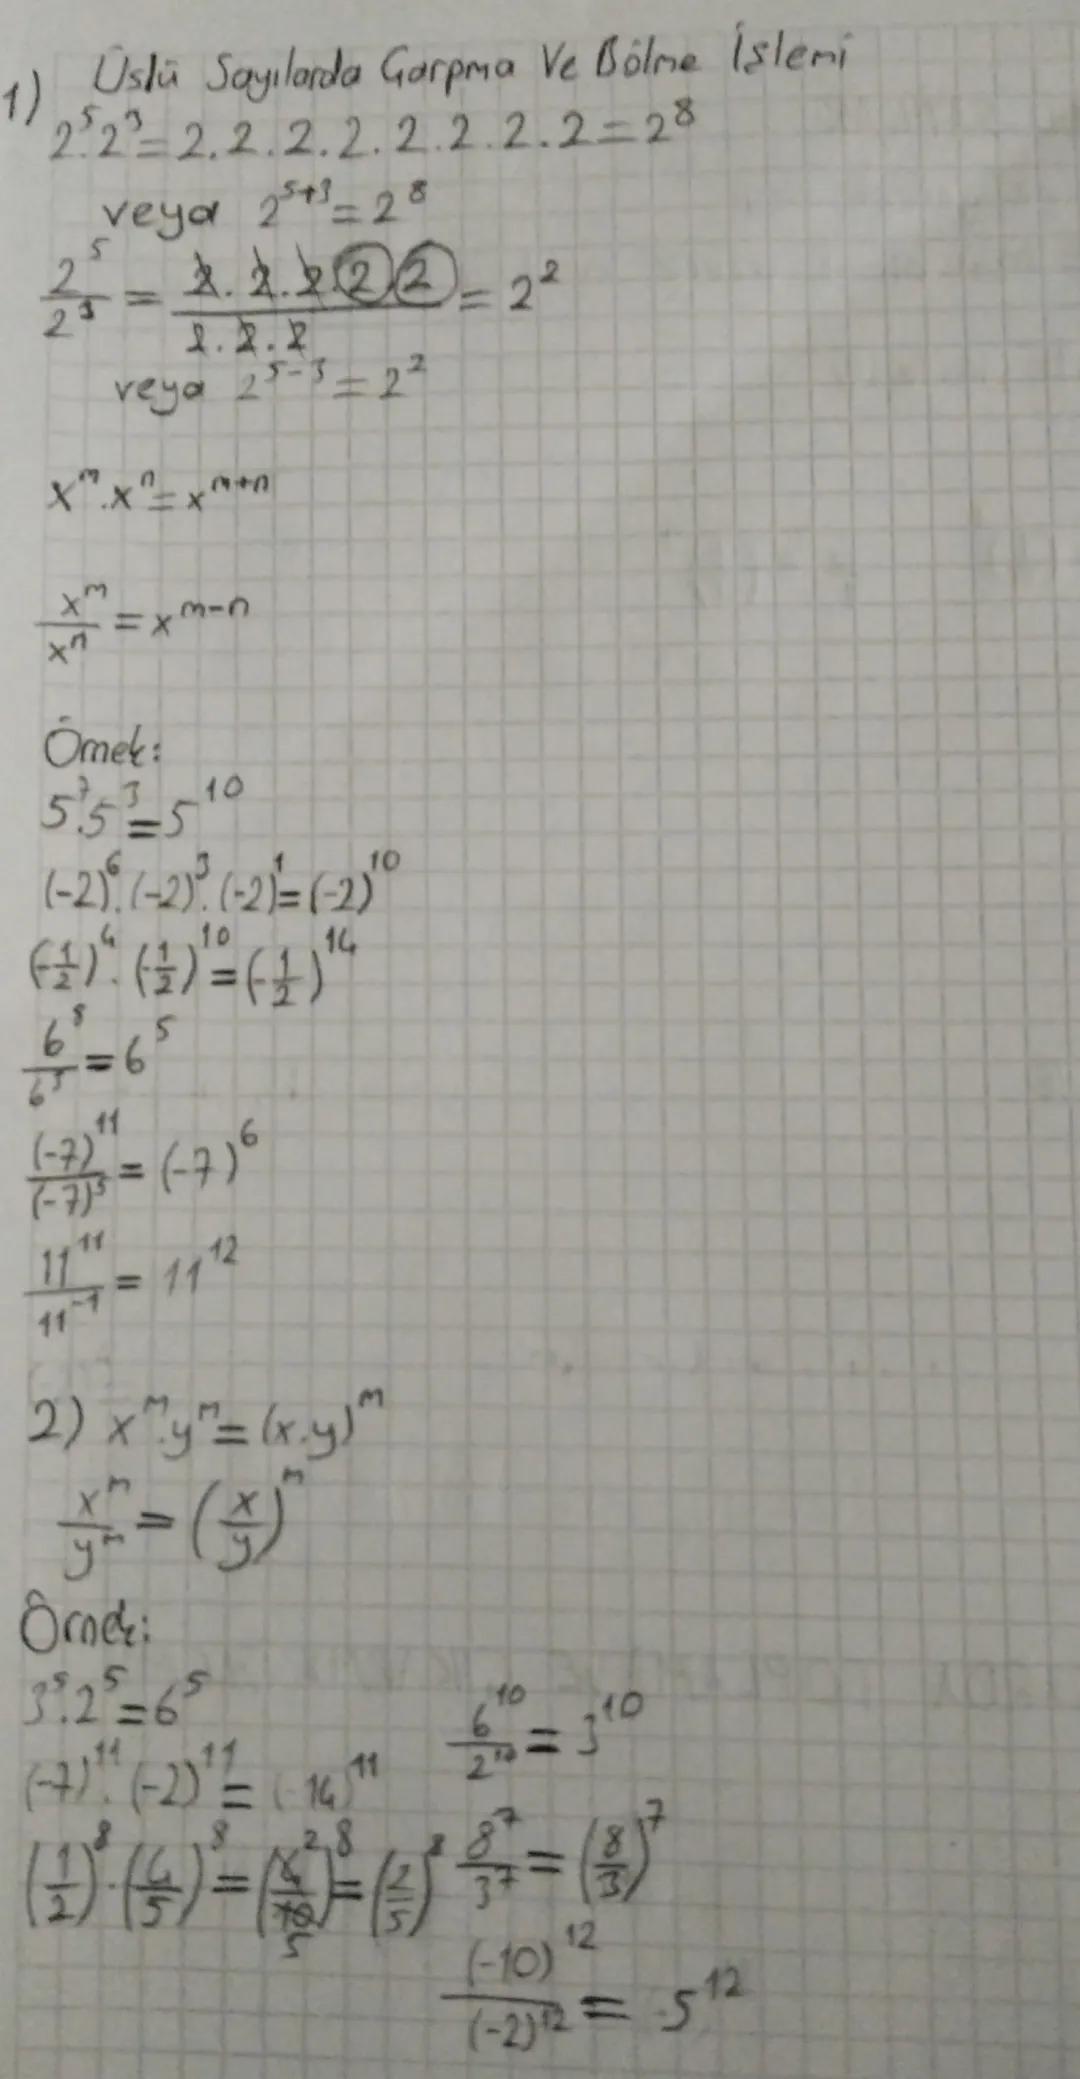 Üslü Sayılarda Çarpma Ve Bölme İşlemi
1) 2⁵.2³=2.2.2.2.2.2.2.2=2⁸
veya 2⁵⁺³=2⁸
2⁵/2³ = 2.2.2.2.2/2.2.2 = 2²
veya 2⁵⁻³=2²
xᵐ.xⁿ=xᵐ⁺ⁿ
xᵐ/xⁿ = xᵐ⁻ⁿ
Örnek:
5⁷.5³=5¹⁰
(-2)⁶.(-2)³.(-2)¹=(-2)¹⁰
(-1/2)⁴.(-1/2)¹⁰=(-1/2)¹⁴
6⁸/6³=6⁵
(-7)¹¹/(-7)⁵=(-7)⁶
11¹¹/11⁻¹=11¹²
2) xᵐ.yᵐ=(x.y)ᵐ
xᵐ/yᵐ=(x/y)ᵐ
Örnek:
3⁵.2⁵=6⁵
(-7)¹¹.(-2)¹¹=(-14)¹¹
(1/2)⁸.(4/5)⁸=(4²/10 5)⁸=(2/5)⁸
6¹⁰/2¹⁰=3¹⁰
8⁷/3⁷=(8/3)⁷
(-10)¹²/(-2)¹²=5¹²